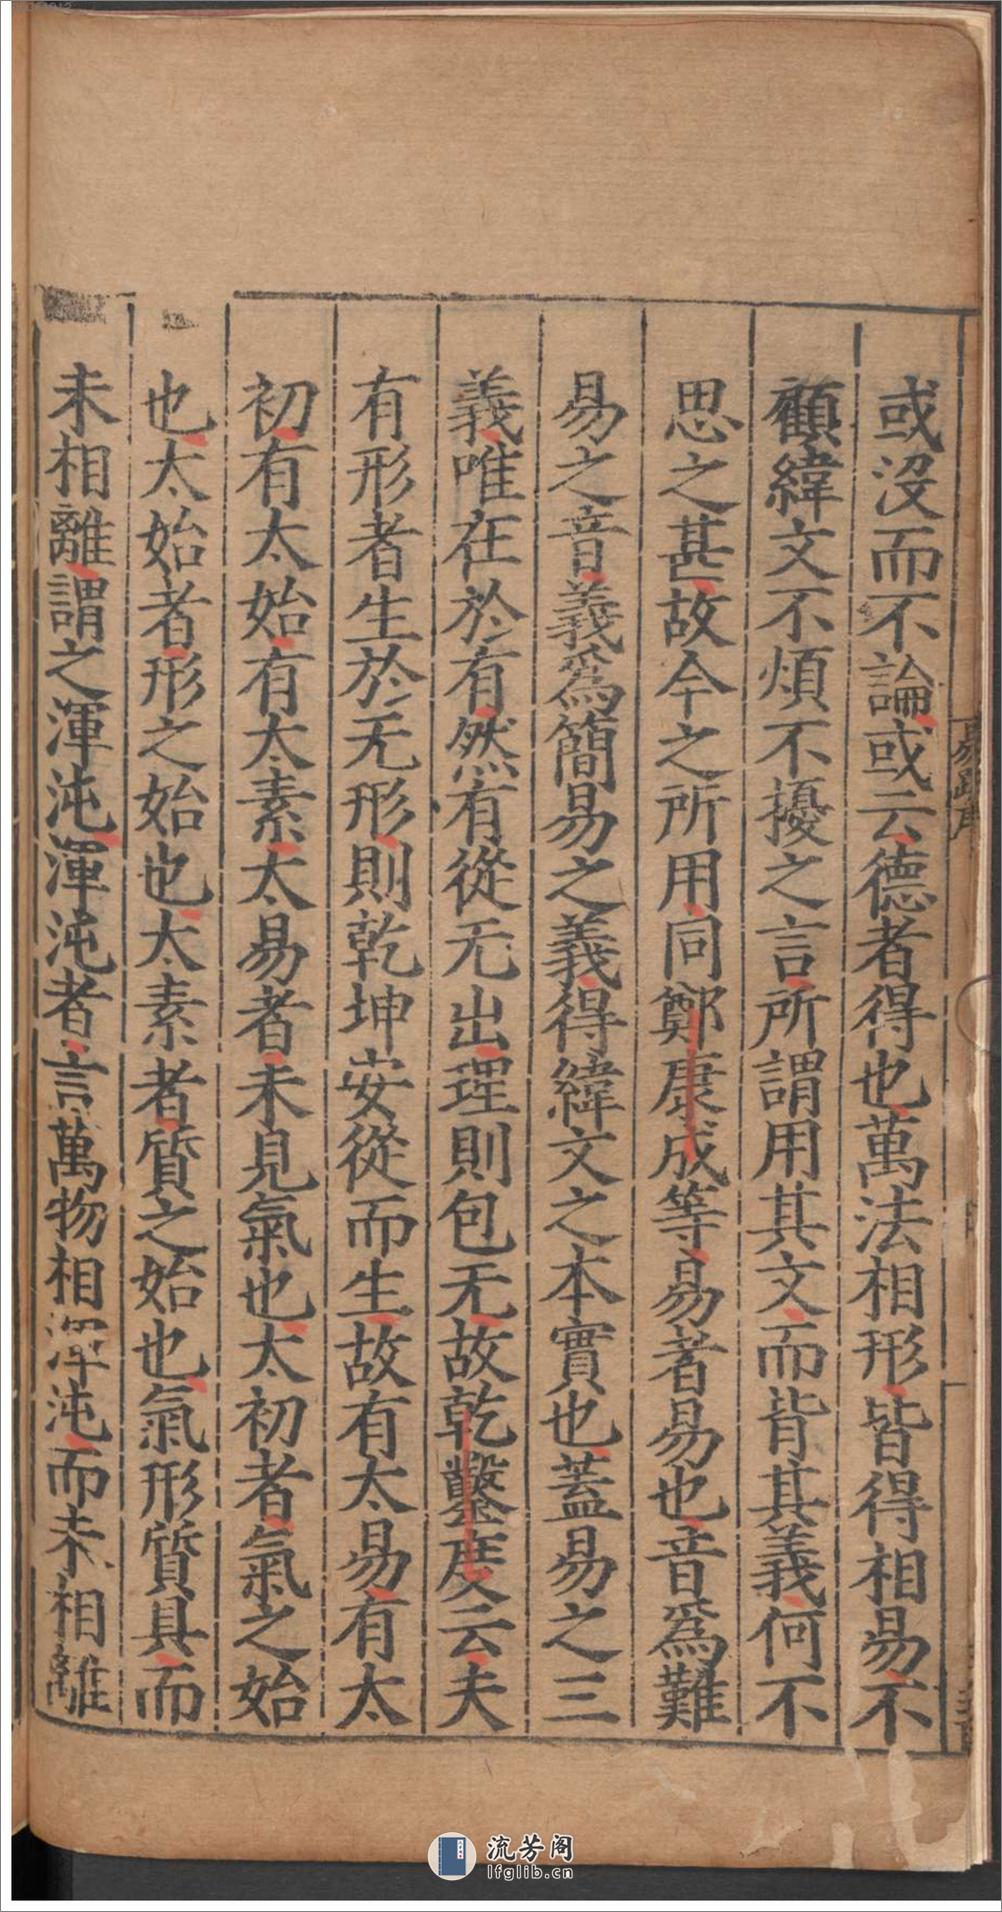 或沒而不論或云德者得也萬法相形皆得相易不
顧緯文不煩不擾之言所謂用其文而背其義何不
思之甚故今之所用同鄭康成等易者易也音爲難
易之音義爲簡易之義得緯文之本實也蓋易之三
義唯在於有然有從无出理則包无故乾鑿度云夫
有形者生於无形則乾坤安從而生故有太易有太
初有太始有太素太易者未見氣也太初者氣之始
也太始者形之始也太素者質之始也氣形質具而
未相離謂之渾沌渾沌者言萬物相渾沌而未相離
流芳阁
lfglib.cn